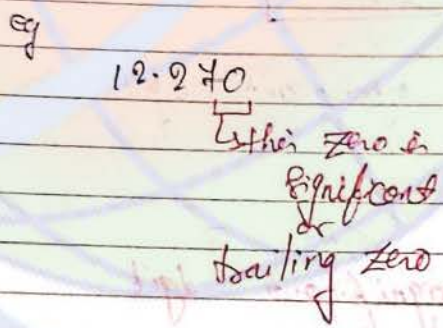 eg
12.270
↳ this zero is
significant
or
trailing zero